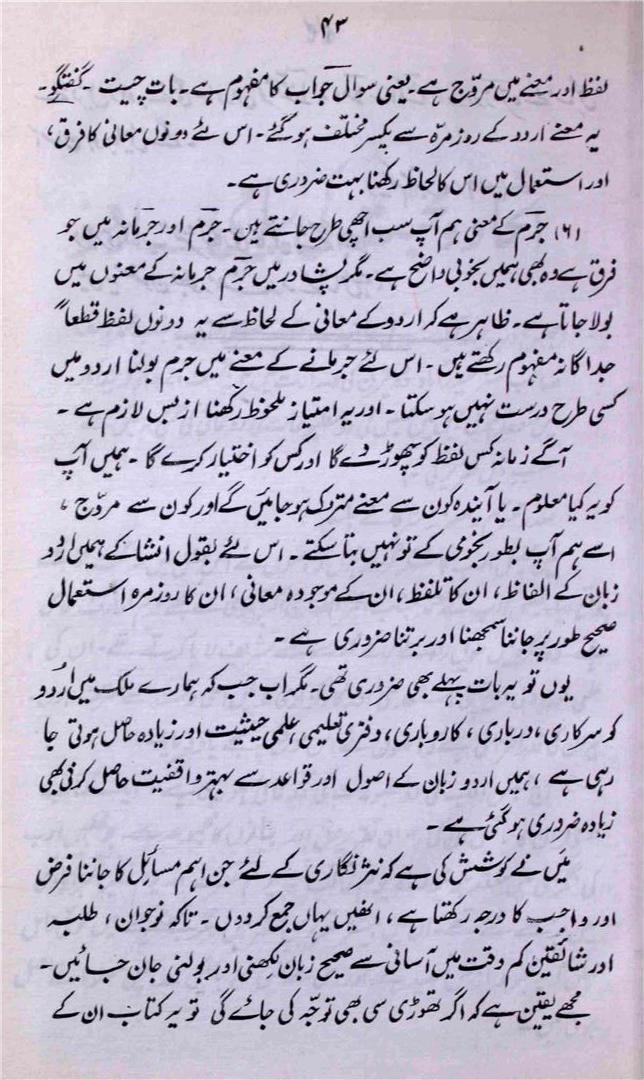 ۴۳
لفظ اور معنے میں مروّج ہے۔ یعنی سوال جواب کا مفہوم ہے۔ بات چیت ۔ گفتگو۔
یہ معنے اردو کے روزمرّہ سے یکسر مختلف ہو گئے۔ اس لئے دونوں معانی کا فرق،
اور استعمال میں اس کا لحاظ رکھنا بہت ضروری ہے۔
(۶) جرم کے معنی ہم آپ سب اچھی طرح جانتے ہین۔ جرم اور جرمانہ میں جو
فرق ہے وہ بھی ہمیں بخوبی واضح ہے۔ مگر پشاور میں جرم جرمانہ کے معنوں میں
بولا جاتا ہے۔ ظاہر ہے کہ اردو کے معانی کے لحاظ سے یہ دونوں لفظ قطعاً
جداگانہ مفہوم رکھتے ہیں۔ اس لئے جرمانے کے معنے میں جرم بولنا اردو میں
کسی طرح درست نہیں ہو سکتا۔ اور یہ امتیاز ملحوظ رکھنا از بس لازم ہے۔
آگے زمانہ کس لفظ کو چھوڑے گا اور کس کو اختیار کرے گا۔ ہمیں آپ
کو یہ کیا معلوم۔ یا آیندہ کون سے معنے متروک ہو جائیں گے اور کون سے مروّج،
اسے ہم آپ بطور نجومی کے تو نہیں بتا سکتے۔ اس لئے بقول انشا کے ہمیں اردو
زبان کے الفاظ، ان کا تلفظ، ان کے موجودہ معانی، ان کا روزمرہ استعمال
صحیح طور پر جاننا سمجھنا اور برتنا ضروری ہے۔
یوں تو یہ بات پہلے بھی ضروری تھی۔ مگر اب جب کہ ہمارے ملک میں اُردو
کو سرکاری، درباری، کاروباری، دفتری تعلیمی، علمی حیثیت اور زیادہ حاصل ہوتی جا
رہی ہے، ہمیں اردو زبان کے اصول اور قواعد سے بہتر واقفیت حاصل کرنی بھی
زیادہ ضروری ہو گئی ہے۔
میں نے کوشش کی ہے کہ نثر نگاری کے لئے جن اہم مسائل کا جاننا فرض
اور واجب کا درجہ رکھتا ہے، انھیں یہاں جمع کر دوں۔ تاکہ نوجوان، طلبہ
اور شائقین کم وقت میں آسانی سے صحیح زبان لکھنی اور بولنی جان جائیں۔
مجھے یقین ہے کہ اگر تھوڑی سی بھی توجّہ کی جائے گی تو یہ کتاب ان کے